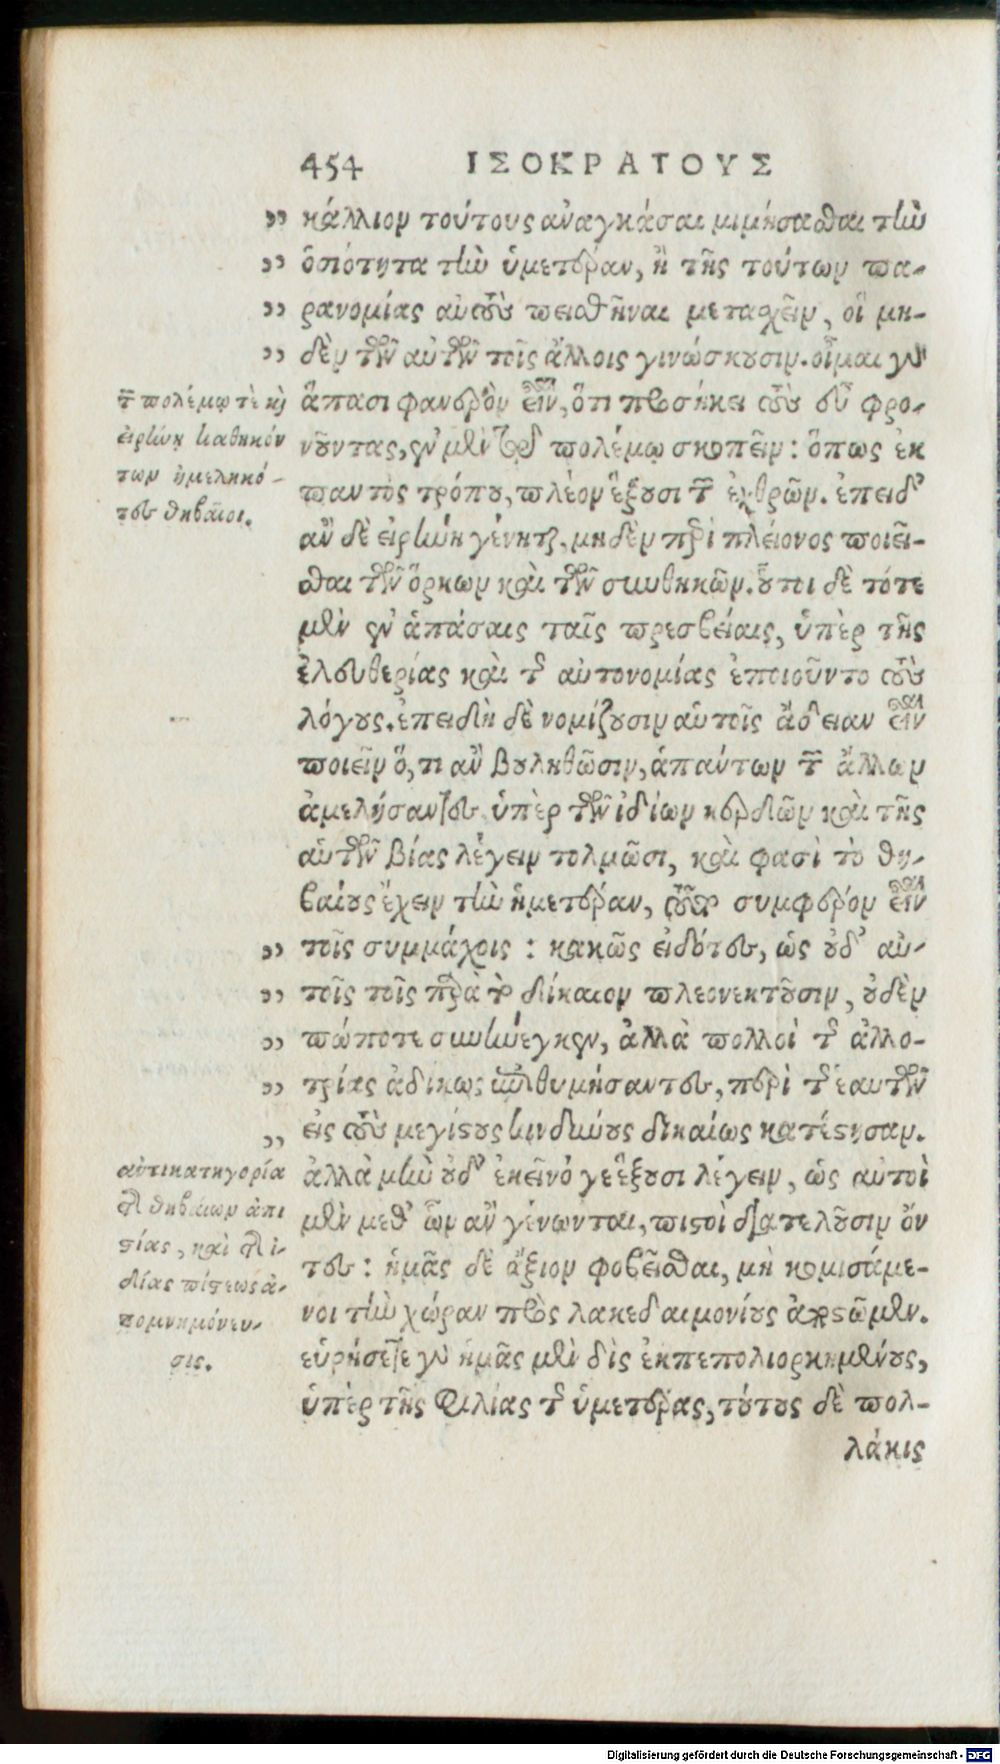 454 ΙΣΟΚΡΑΤΟΥΣ
„ κάλλιον τούτους ἀναγκάσαι μιμήσασθαι τὴν
„ ὁσιότητα τὴν ὑμετέραν, ἢ τῆς τούτων πα-
„ ρανομίας αὐτοὺς πεισθῆναι μετασχεῖν, οἳ μη-
„ δὲν τῶν αὐτῶν τοῖς ἄλλοις γινώσκουσιν. οἶμαι γὰρ
ἅπασι φανερὸν εἶναι, ὅτι προσήκει τοὺς εὖ φρο-
νοῦντας, ἐν μὲν τῷ πολέμῳ σκοπεῖν: ὅπως ἐκ
παντὸς τρόπου, πλέον ἕξουσι τῶν ἐχθρῶν. ἐπειδ’
ἂν δὲ εἰρήνη γένηται, μηδὲν περὶ πλείονος ποιεῖ-
σθαι τῶν ὅρκων καὶ τῶν συνθηκῶν. οὗτοι δὲ τότε
μὲν ἐν ἁπάσαις ταῖς πρεσβείαις, ὑπὲρ τῆς
ἐλευθερίας καὶ τῆς αὐτονομίας ἐποιοῦντο τοὺς
λόγους. ἐπειδὴ δὲ νομίζουσιν αὑτοῖς ἄδειαν εἶναι
ποιεῖν ὅ, τι ἂν βουληθῶσιν, ἁπάντων τῶν ἄλλων
ἀμελήσαντες ὑπὲρ τῶν ἰδίων κερδῶν καὶ τῆς
αὑτῶν βίας λέγειν τολμῶσι, καὶ φασὶ τὸ θη-
βαίους ἔχειν τὴν ἡμετέραν, τοῦτο συμφέρον εἶναι
„ τοῖς συμμάχοις: κακῶς εἰδότες, ὡς οὐδ’ αὐ-
„ τοῖς τοῖς παρὰ τὸ δίκαιον πλεονεκτοῦσιν, οὐδὲν
„ πώποτε συνήνεγκεν, ἀλλὰ πολλοὶ τῆς ἀλλο-
„ τρίας ἀδίκως ἐπιθυμήσαντες, περὶ τῆς ἑαυτῶν
„ εἰς τοὺς μεγίστους κινδύνους δικαίως κατέστησαν.
ἀλλὰ μὴν οὐδ’ ἐκεῖνό γε ἕξουσι λέγειν, ὡς αὐτοὶ
μὲν μεθ’ ὧν ἂν γένωνται, πιστοὶ διατελοῦσιν ὄν
τες: ἡμᾶς δὲ ἄξιον φοβεῖσθαι, μὴ κομισάμε-
νοι τὴν χώραν πρὸς λακεδαιμονίους ἀποστῶμεν.
εὑρήσετε γὰρ ἡμᾶς μὲν δὶς ἐκπεπολιορκημένους,
ὑπὲρ τῆς φιλίας τῆς ὑμετέρας, τούτους δὲ πολ-
λάκις
τῶν πολέμῳ τὲ καὶ
εἰρήνῃ καθηκόν
των ἠμεληκό-
τες θηβαῖοι.
αὐτικατηγορία
τῆς θηβαίων ἀπι
στίας, καὶ τῆς ἰ-
δίας πίστεως ἀ-
πομνημόνευ-
σις.
Digitalisierung gefördert durch die Deutsche Forschungsgemeinschaft - DFG